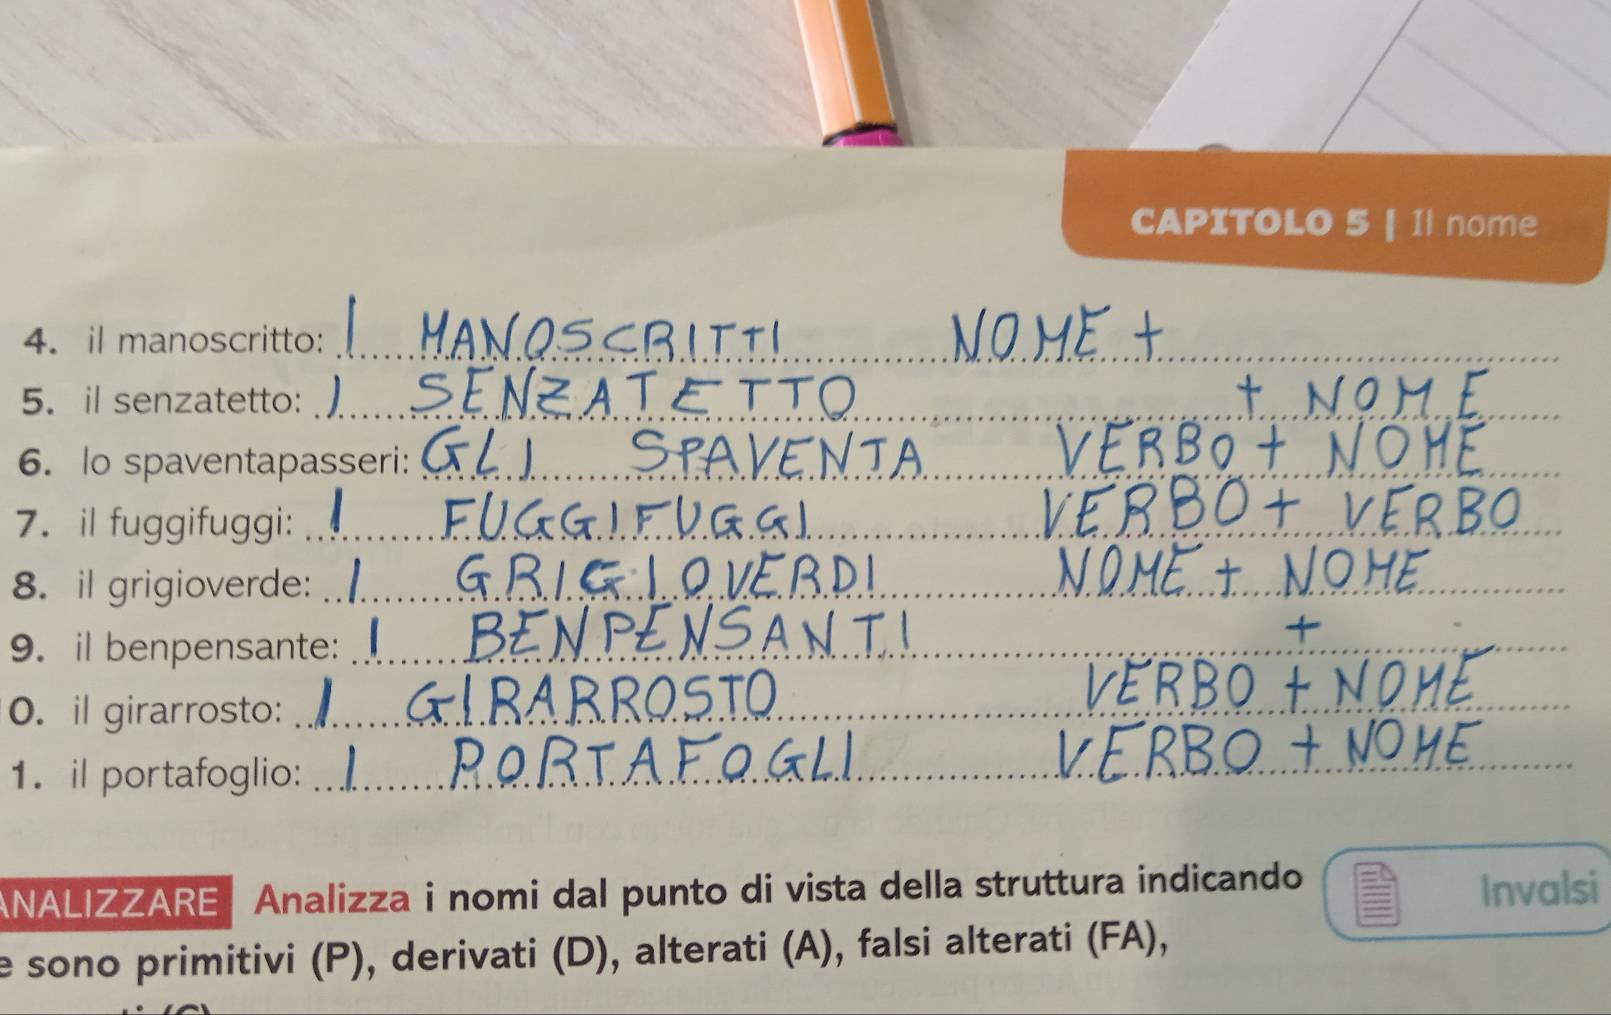 CAPITOLO 5 | Il nome
4. il manoscritto: I MANOSCRITTI NOME +
5. il senzatetto: I SENZATETTO + NOME
6. lo spaventapasseri: GLI SPAVENTA VERBO + NOME
7. il fuggifuggi: I FUGGIFUGGI VERBO + VERBO
8. il grigioverde: I GRIGIOVERDI NOME + NOME
9. il benpensante: I BENPENSANTI +
0. il girarrosto: I GIRARROSTO VERBO + NOME
1. il portafoglio: I PORTAFOGLI VERBO + NOME
ANALIZZARE Analizza i nomi dal punto di vista della struttura indicando
Invalsi
e sono primitivi (P), derivati (D), alterati (A), falsi alterati (FA),